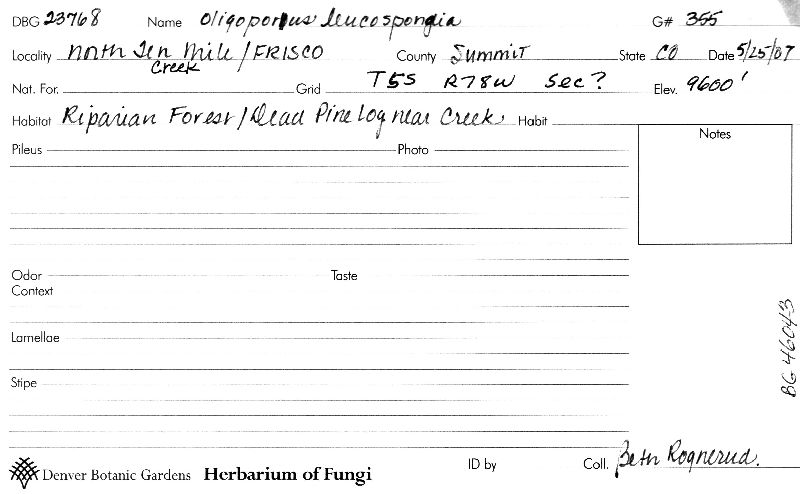 DBG 23768 Name Oligoporus leucospongia G# 355
Locality North Ten Mile / FRISCO County Summit State CO Date 5/25/07
Creek
Nat. For. Grid T5S R78W Sec? Elev. 9600'
Habitat Riparian Forest / Dead Pine Log near Creek Habit
Notes
Pileus Photo
Odor Taste
Context
Lamellae
Stipe
BG 46043
Denver Botanic Gardens Herbarium of Fungi ID by Coll. Beth Rognerud.